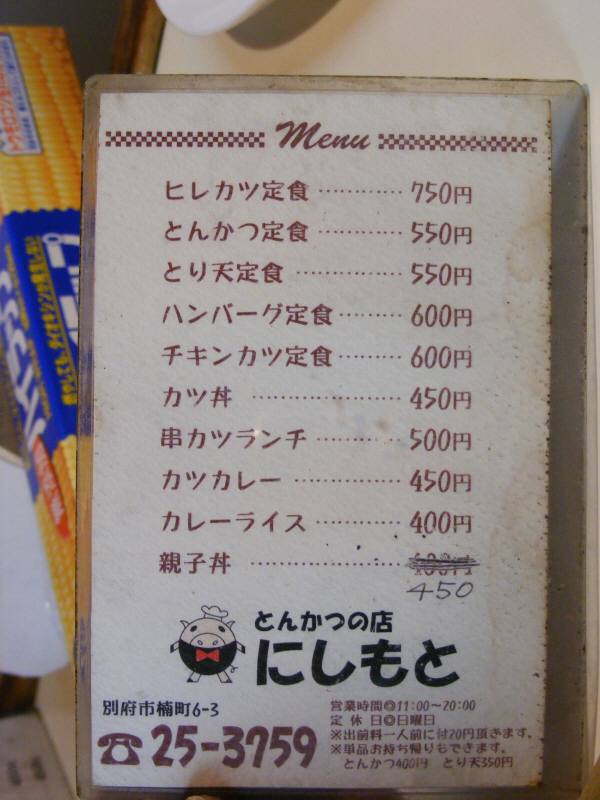 Menu
ヒレカツ定食 ………… 750円
とんかつ定食 ………… 550円
とり天定食 ………… 550円
ハンバーグ定食 ……… 600円
チキンカツ定食 ……… 600円
カツ丼 ……………… 450円
串カツランチ ………… 500円
カツカレー ………… 450円
カレーライス ………… 400円
親子丼 ………………
450
とんかつの店
にしもと
別府市楠町6-3
☎25-3759
営業時間◎11:00〜20:00
定休日◎日曜日
※出前料一人前に付70円頂きます。
※単品お持ち帰りもできます。
とんかつ400円 とり天350円